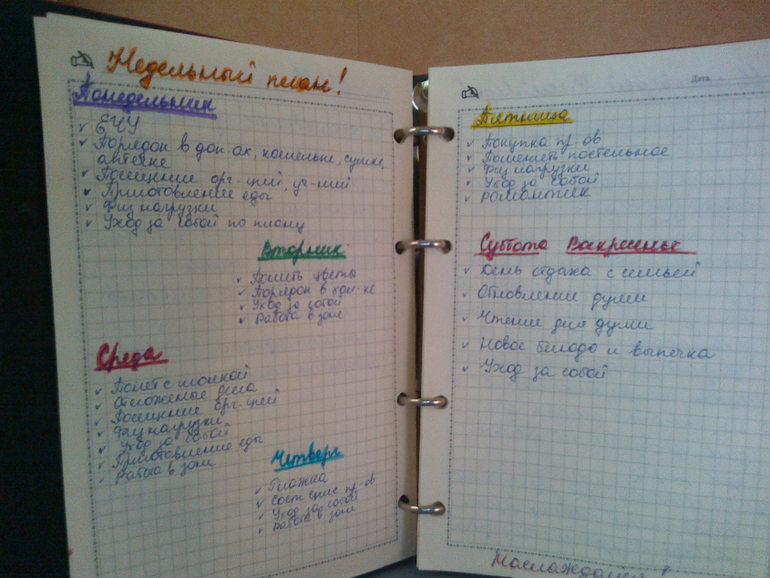 Недельный план!
Понедельник
ЕЧУ
Порядок в док-ах, кошельке, сумке,
аптечке
Посещение орг-ций, уч-ний
Приготовление еды
Физ нагрузки
Уход за собой по плану
Вторник
Полить цветы
Порядок в
Уход за собой
Работа в зоне
Среда
Полет с
Отложеные дела
Посещение орг-ций
Физ нагрузки
Уход за собой
Приготовление еды
Работа в зоне
Четверг
Глажка
Сост спис пр-ов
Уход за собой
Работа в зоне
Дата
Пятница
Покупка пр-ов
Поменять постельное
Физ нагрузки
Уход за собой
РОМАНТИК
Суббота Воскресенье
День отдыха с семьей
Обновление души
Чтение для души
Новое блюдо и выпечка
Уход за собой